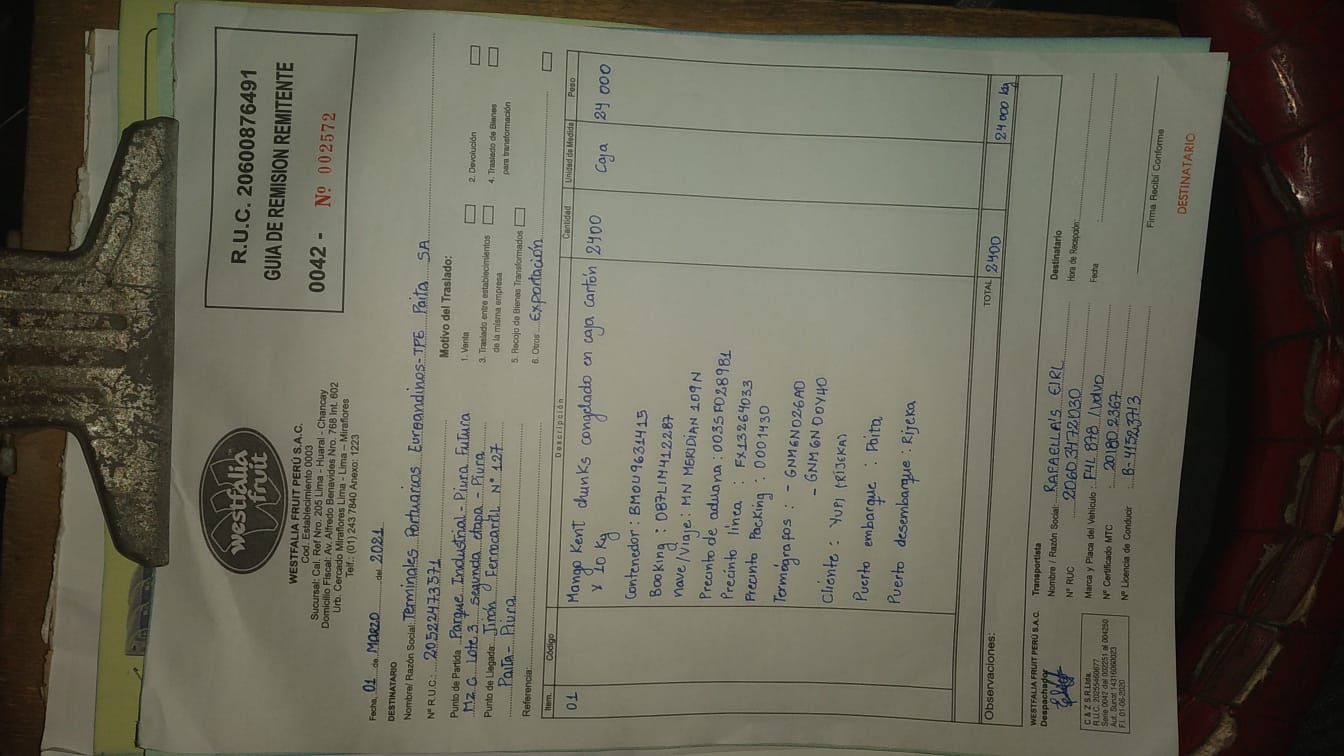 westfalia
fruit
WESTFALIA FRUIT PERÚ S.A.C.
Cod. Establecimiento 0003
Sucursal: Cal. Ref Nro. 205 Lima - Huaral - Chancay
Domicilio Fiscal: Av. Alfredo Benavides Nro. 768 Int. 602
Urb. Cercado Miraflores Lima - Lima – Miraflores
Telf.: (01) 243 7840 Anexo: 1223
R.U.C. 20600876491
GUIA DE REMISION REMITENTE
0042 - Nº 002572
Fecha, 01 de Marzo del 2021
DESTINATARIO
Nombre/ Razón Social: Terminales Portuarios Euroandinos-TPE Paita SA
N° R.U.C.: 20522473571
Punto de Partida Parque Industrial - Piura Futura
Mz. C Lote 3 segunda etapa - Piura
Punto de Llegada: Jirón Ferrocarril N° 127
Paita - Piura
Referencia:
Motivo del Traslado:
1. Venta
2. Devolución
3. Traslado entre establecimientos
de la misma empresa
4. Traslado de Bienes
para transformación
5. Recojo de Bienes Transformados
6. Otros Exportación
Item. Código Descripción Cantidad Unidad de Medida Peso
01 Mango Kent chunks congelado en caja cartón 2400 Caja 24 000
x 10 Kg
Contenedor: BMOU9631415
Booking: DB7LIM412287
nave/Viaje: MN MERIDIAN 109N
Precinto de aduana: 0035F028981
Precinto línea : FX13264033
Precinto Packing : 0001430
Termografos : - GNM6N026A0
- GNM6N00Y40
Cliente : YUPI (RIJEKA)
Puerto embarque : Paita
Puerto desembarque : Rijeka
Observaciones:
TOTAL 2400 24000 kg
WESTFALIA FRUIT PERÚ S.A.C.
Despachador
C & Z S.R.Ltda.
Serie 0042 del 002251 al 004250
Aut. Sunat 14316060023
F.I. 01-06-2020
Transportista
Nombre / Razón Social: RAFAELLA'S EIRL
N° RUC 20603472030
Marca y Placa del Vehículo: F4L 878 / Volvo
N° Certificado MTC 20180 2367
N° Licencia de Conducir B-41523713
Destinatario
Hora de Recepción:
Fecha
Firma Recibí Conforme
DESTINATARIO